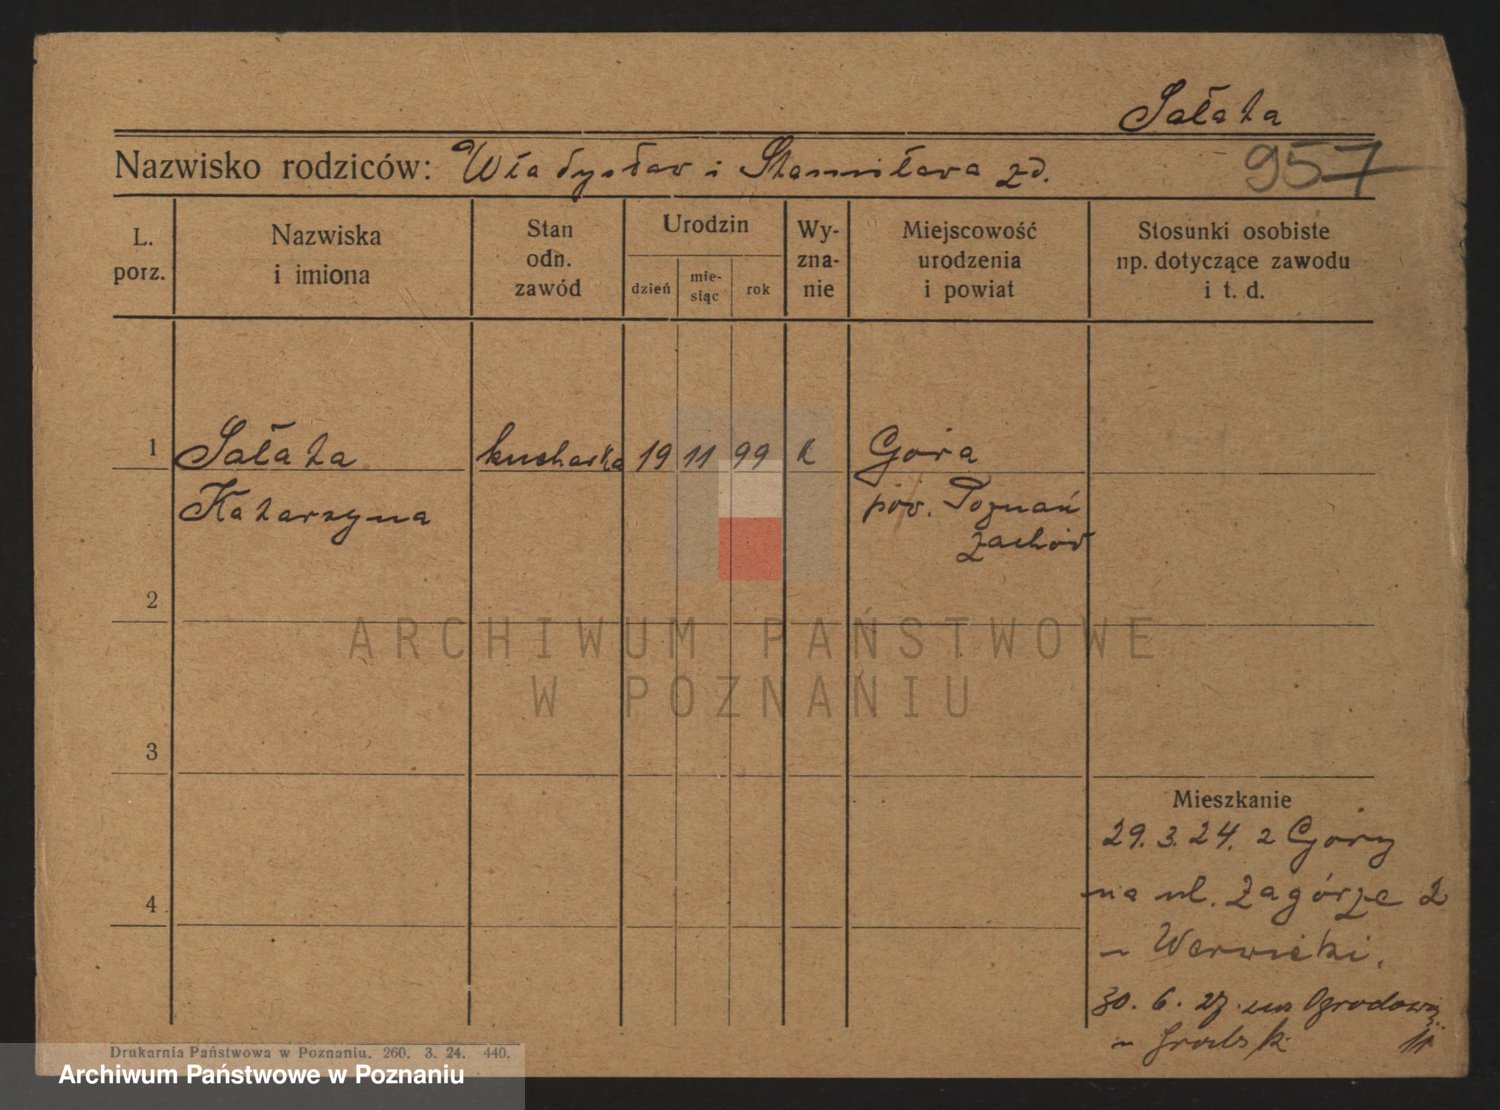 Sałata
Nazwisko rodziców: Władysław i Stanisława zd.
957
L. porz.
Nazwiska i imiona
Stan odn. zawód
Urodzin
dzień
mie-siąc
rok
Wy-zna-nie
Miejscowość urodzenia i powiat
Stosunki osobiste np. dotyczące zawodu i t. d.
1 Sałata kucharka 19 11 99 k Góra
Katarzyna pow. Poznań
zachód
2
3
4
ARCHIWUM PAŃSTWOWE
W POZNANIU
Mieszkanie
29. 3. 24. z Góry
na ul. Zagórze 2
u
30. 6. 27. na Ogrodową
11
u
Drukarnia Państwowa w Poznaniu. 260. 3. 24. 440.
Archiwum Państwowe w Poznaniu